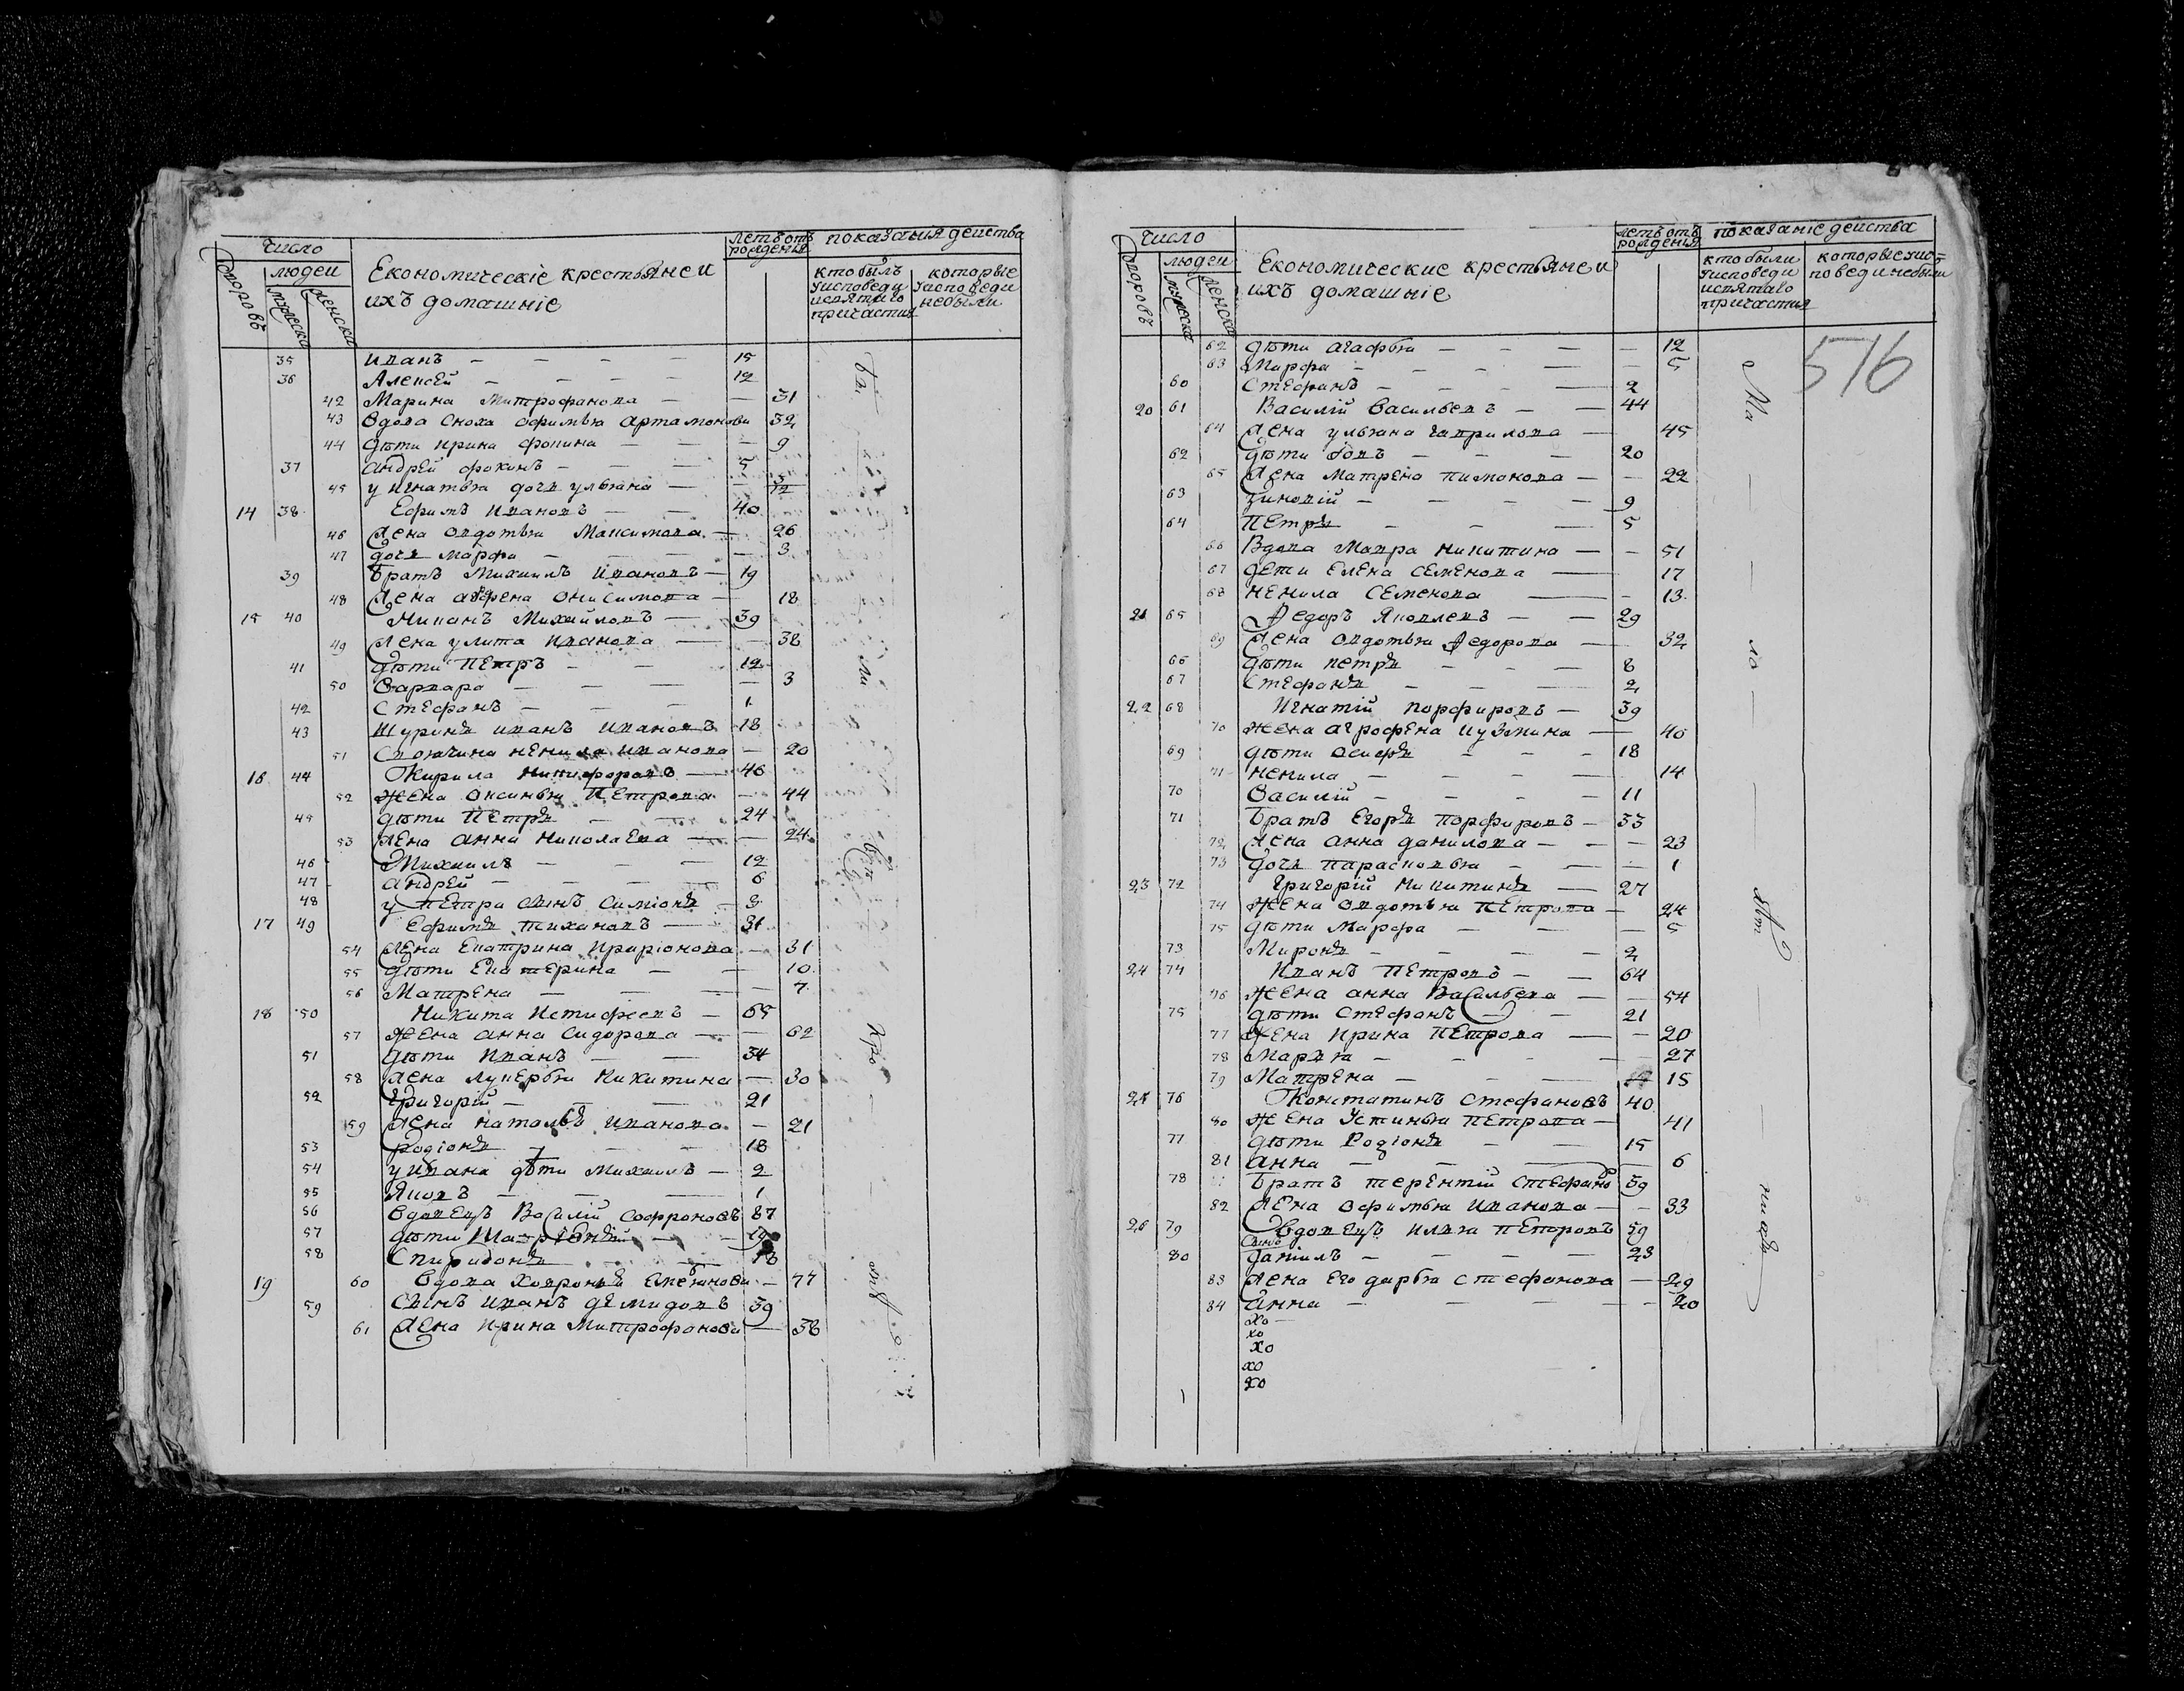 число
летъ отъ рожденья
показания действа
дворовъ
людей
мужеска
женска
Економическіе крестьяне и
ихъ домашніе
кто былъ у исповеди и святаго причастия
которые у исповеди небыли
35 Иванъ — 15
36 Алексей — 12
42 Марина Митрофанова — 31
43 Вдова сноха Офимья Артамонова 32
44 дѣти Ирина Фокина — 9
37 Андрей Фокинъ — 5
45 у Игнатья дочь Ульяна —
14 38 Ефимъ Ивановъ — 40
46 жена Овдотья Максимова — 26
47 дочь Марфа — 3
39 братъ Михаилъ Ивановъ — 19
48 жена Онисимова — 18
15 40 Михайловъ — 39
49 жена Улита Иванова — 38
41 дѣти Петръ — 12
50 Варвара — 3
42 Стефанъ — 1
43 Шуринъ Иванъ Ивановъ 18
51 Ненила Иванова — 20
16 44 Кирила Никифоровъ — 46
52 жена Оксинья Петрова — 44
45 дѣти Петръ — 24
53 жена Анна Николаева — 24
46 Михаилъ — 12
47 Андрей — 6
48 у Петра сынъ Симіонъ — 3
17 49 Ефимъ Тихановъ — 31
54 жена Екатрина — 31
55 дѣти Екатерина — 10
56 Матрена — 7
18 50 Никита — 65
57 жена Анна Сидорова — 62
51 дѣти Иванъ — 34
58 жена Лукерья Никитина — 30
52 Григорій — 21
59 жена Наталья Иванова — 21
53 Родіонъ — 18
54 у Ивана дѣти Михаилъ — 2
55 Яковъ — 1
56 Вдовецъ Василій Софроновъ 87
57 дѣти
58 Спиридонъ — 18
19 60 Вдова — 77
59 Сынъ Иванъ Демидовъ 39
61 жена Ирина Митрофанова — 38
число
летъ отъ рожденья
показаніе действа
дворовъ
людей
мужеска
женска
Економические крестьяне и
ихъ домашніе
кто были у исповеди и святаго причастия
которые у исповеди небыли
516
62 дѣти Агафья — 12
63 Марфа — 5
60 Стефанъ — 2
20 61 Василій Васильевъ — 44
64 жена Ульяна Гаврилова — 45
62 дѣти — 20
65 жена Матрена Пимонова — 22
63 Зиновій — 9
64 Петръ — 5
66 Вдова Мавра Никитина — 51
67 дети Елена Семенова — 17
68 Ненила Семенова — 13
21 65 Федоръ Яковлевъ — 29
69 жена Овдотья Федорова — 32
66 дѣти Петръ — 8
67 Стефанъ — 2
22 68 Игнатій Порфировъ — 39
70 жена Агрофена Кузмина — 40
69 дѣти Осифъ — 18
71 Ненила — 14
70 Василій — 11
71 братъ Егоръ Порфировъ — 33
72 жена Анна Данилова — 23
73 дочь Парасковья — 1
23 72 Григорій Никитинъ — 27
74 жена Овдотья Петрова — 24
75 дѣти Марфа — 5
73 Миронъ — 2
24 74 Иванъ Петровъ — 64
76 жена Анна Васильева — 54
75 дѣти Стефанъ — 21
77 жена Ирина Петрова — 20
78 Марья — 27
79 Матрена — 15
25 76 Констатинъ Стефановъ 40
80 жена Устинья Петрова — 41
77 дѣти Родіонъ — 15
81 Анна — 6
78 братъ Терентій Стефановъ 39
82 жена Офимья Иванова — 33
26 79 Вдовецъ Илья Петровъ 59
80 сынъ Даніилъ — 23
83 жена его Дарья Стефанова — 29
84 Анна — 20
хо
хо
хо
хо
хо